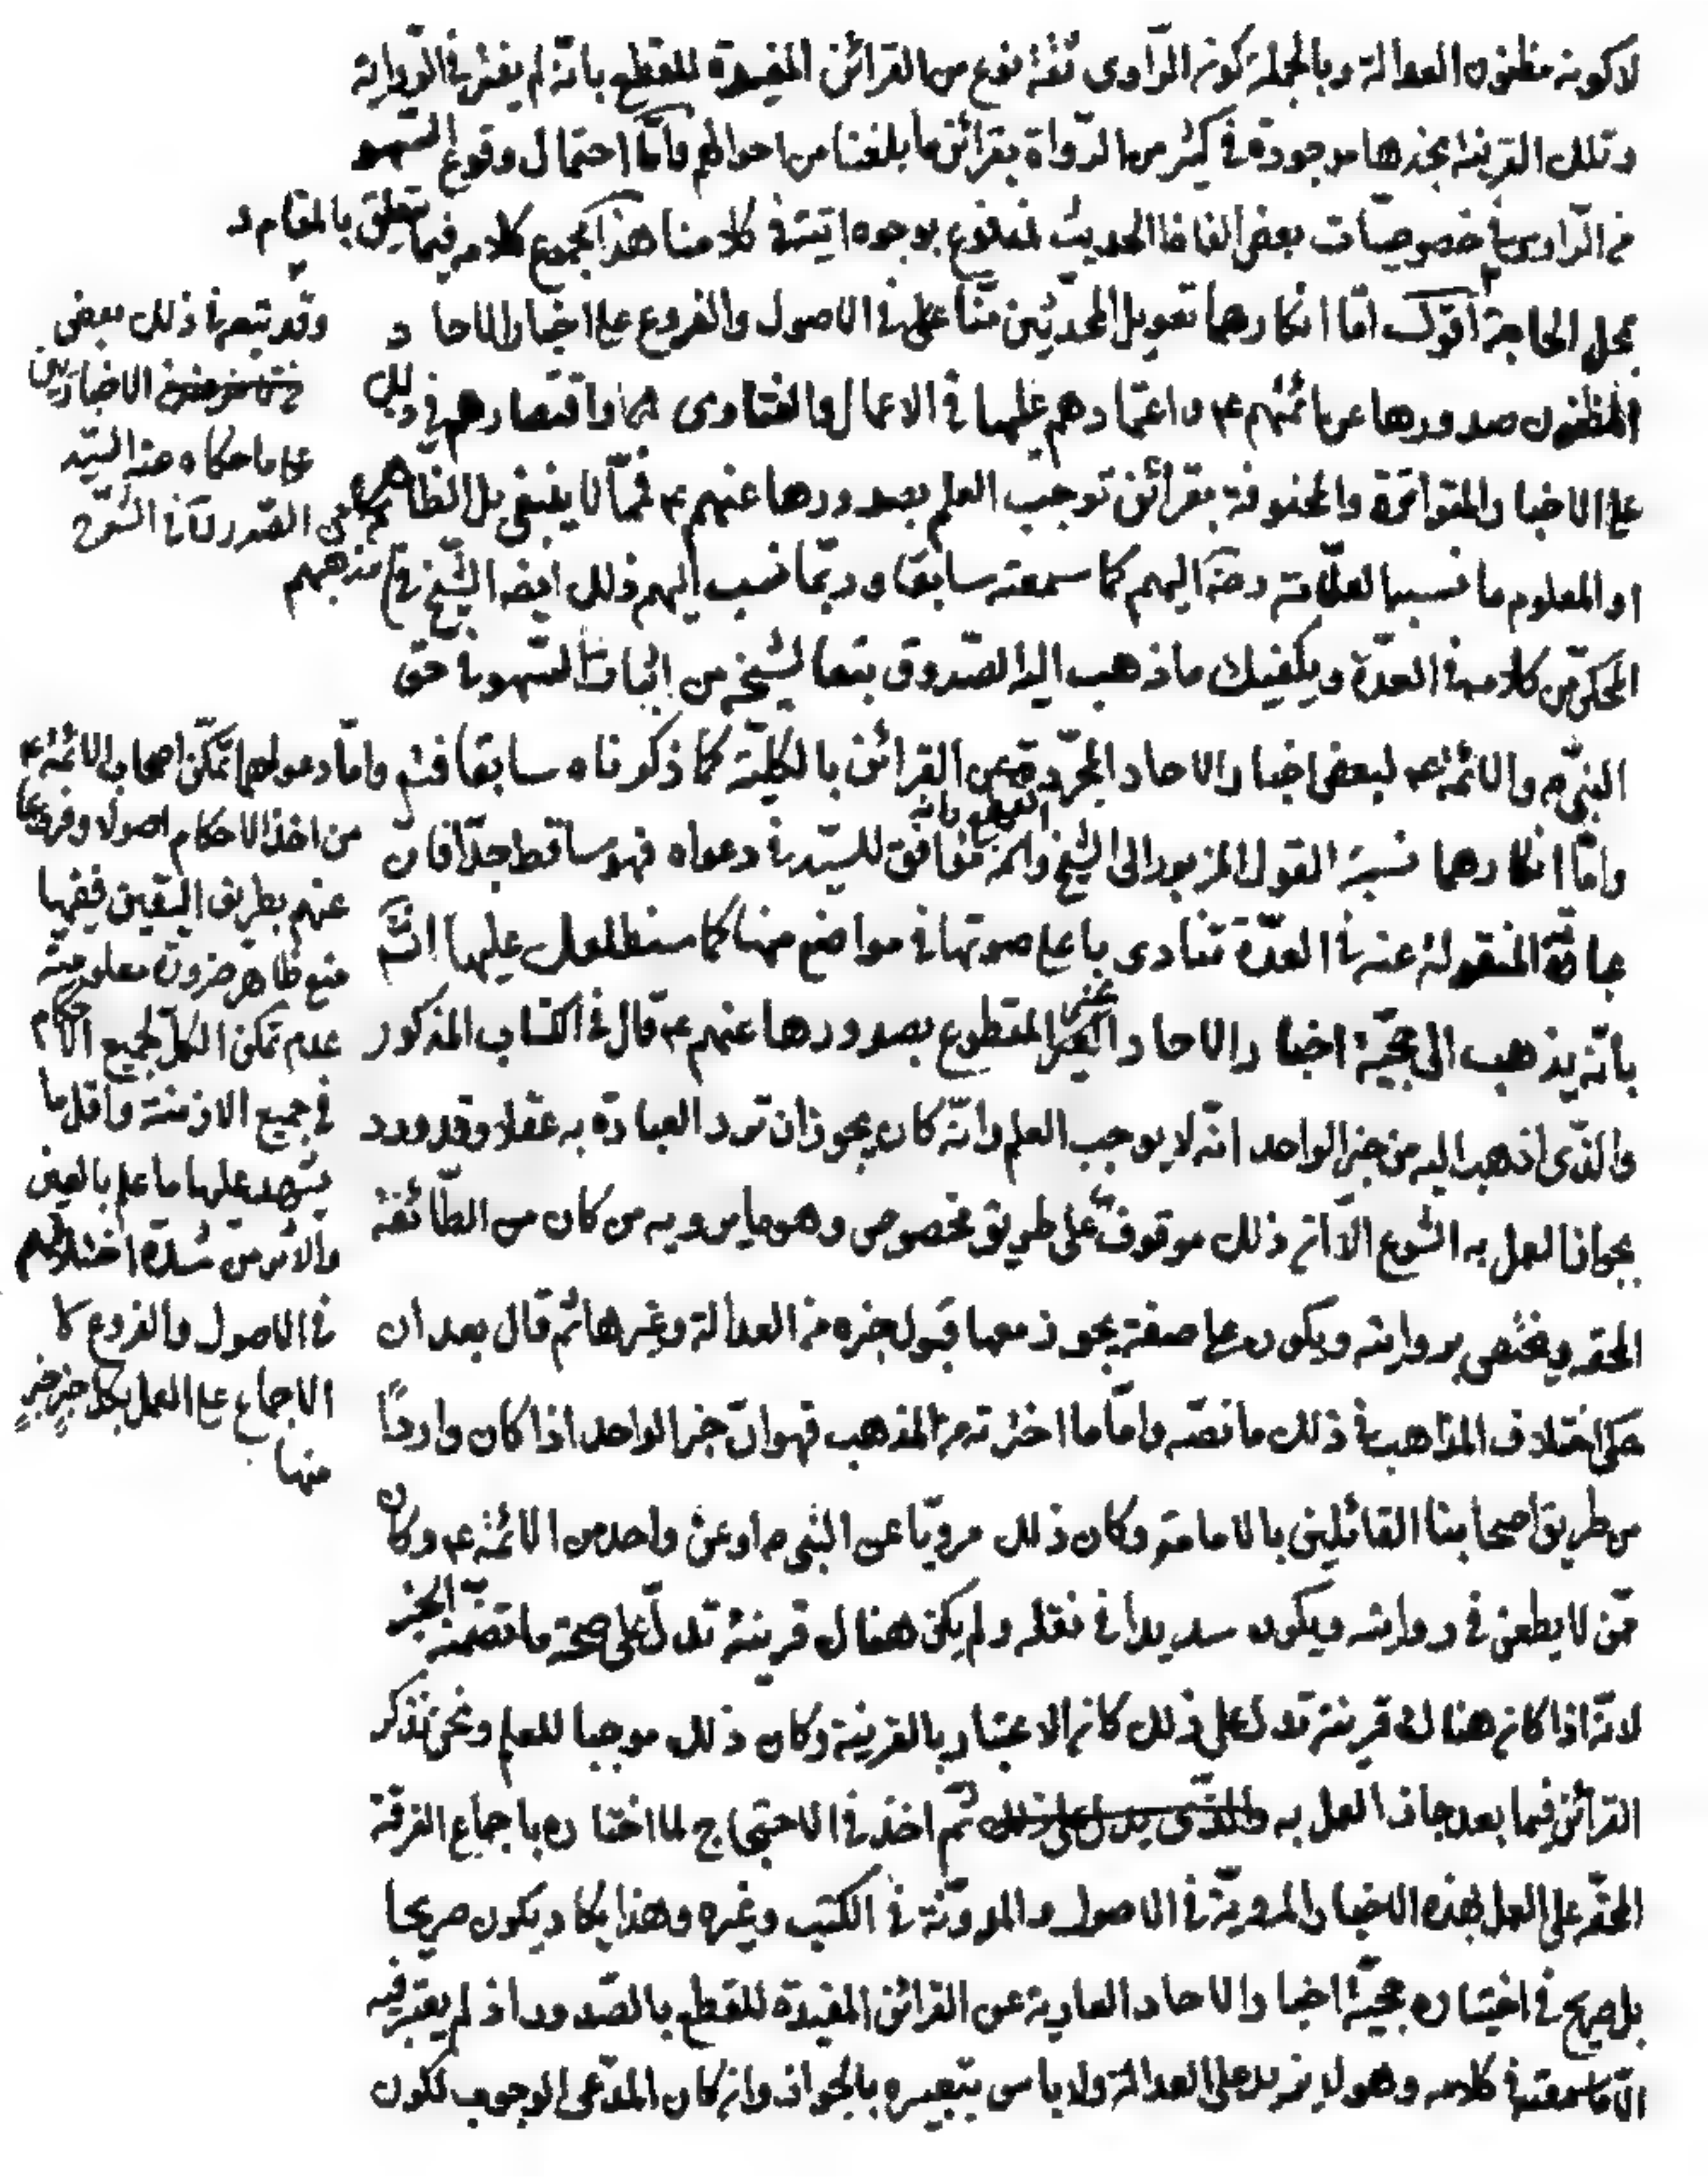 لا كونه مظنون العدالة وبالجملة كون الرّاوى ثقة نوع من القرائن المفيدة للقطع بانّه لم يفتر فى الرّواية
وتلك القرينة نجدها موجودة فى كثير من الرّواة بقرائن ما بلغنا من احوالهم وامّا احتمال وقوع السّهو
من الرّاوى فى خصوصيّات بعض الفاظ الحديث فمدفوع بوجوه اتية فى كلامنا هذا مجموع كلامه فيما يتعلّق بالمقام و
محل الحاجة اقول امّا انكارهما تعويل المحدّثين منّا فى الاصول والفروع على اخبار الاحا د
المظنون صدورها عن ائمّتهم ع واعتمادهم عليها فى الاعمال والفتاوى واقتصارهم فى ذلك
على الاخبار المتواترة والمحفوفة بقرائن توجب العلم بصدورها عنهم ع فممّا لا ينبغى بل الظاهر
او المعلوم ما نسبه العلّامة ره اليهم كما سمعته سابقا وربّما نسب اليهم ذلك ايضا الشّيخ فى مذهبهم
المحكىّ من كلامه فى العدّة ويكفيك ما ذهب اليه الصّدوق تبعا لشيخه من اثبات السّهو فى حق
النبىّ ص والائمّة ع لبعض اخبار الاحاد المجرّدة عن القرائن بالكليّة كما ذكرناه سابقا
وامّا انكارهما نسبة القول المزبور الى الشيخ وانّه موافق للسيّد فى دعواه فهو ساقط جدّا فان
عباراته المنقولة عنه فى العدّة تنادى باعلى صوتها فى مواضع منها كما سنطلعك عليها انشم
بانّه يذهب الى حجيّة اخبار الاحاد الغير المقطوع بصدورها عنهم ع قال فى الكتاب المذكور
والّذى اذهب اليه من خبر الواحد انّه لا يوجب العلم وانّه كان يجوز ان ترد العبادة به عقلا وقد ورد
بجواز العمل به الشرع الّا انّ ذلك موقوف على طريق مخصوص وهو ما يرويه من كان من الطّائفة
المحقّة ويختصّ بروايته ويكون على صفة يجوز معها قبول خبره من العدالة وغيرها ثم قال بعد ان
حكى اختلاف المذاهب فى ذلك ما نصّه وامّا ما اخترته من المذهب فهو انّ خبر الواحد اذا كان واردًا
من طريق اصحابنا القائلين بالامامة وكان ذلك مرويّا عن النبى ص او عن واحد من الائمّة ع وكان
ممّن لا يطعن فى روايته ويكون سديدا فى نقله ولم يكن هناك قرينة تدلّ على صحّة ما تضمّنه الخبر
لانّه اذا كان هناك قرينة تدل على ذلك كان الاعتبار بالقرينة وكان ذلك موجبا للعلم ونحن نذكر
القرائن فيما بعد جاز العمل به والّذى يدل على ذلك ثم اخذ فى الاحتجاج لما اختاره باجماع الفرقة
المحقّة على العمل بهذه الاخبار المرويّة فى الاصول والمدوّنة فى الكتب وغيره وهذا يكاد يكون صريحا
بل صريح فى اختياره حجيّة اخبار الاحاد العارية عن القرائن المفيدة للقطع بالصّدور اذ لم يعتبر فيه
الّا ما سمعته فى كلامه وهو لا يزيد على العدالة ولا باس بتعبيره بالجواز وان كان المدّعى الوجوب لكون
وقد تبعه فى ذلك بعض
الاخباريّين
على ما حكاه عنه السّيد
الصّدر فى الشّرح
وامّا دعواهما تمكّن اصحاب الائمّة ع
من اخذ الاحكام اصولا وفروعا
عنهم بطريق اليقين ففيها
منع ظاهر ضرورة معلوميّة
عدم تمكن الكل لجميع الاحكام
فى جميع الازمنة واقل ما
يشهد عليها ما علم بالعين
والاثر من شدّة اختلافهم
فى الاصول والفروع كا
الاجماع على العمل بكل خبر خبر
منها